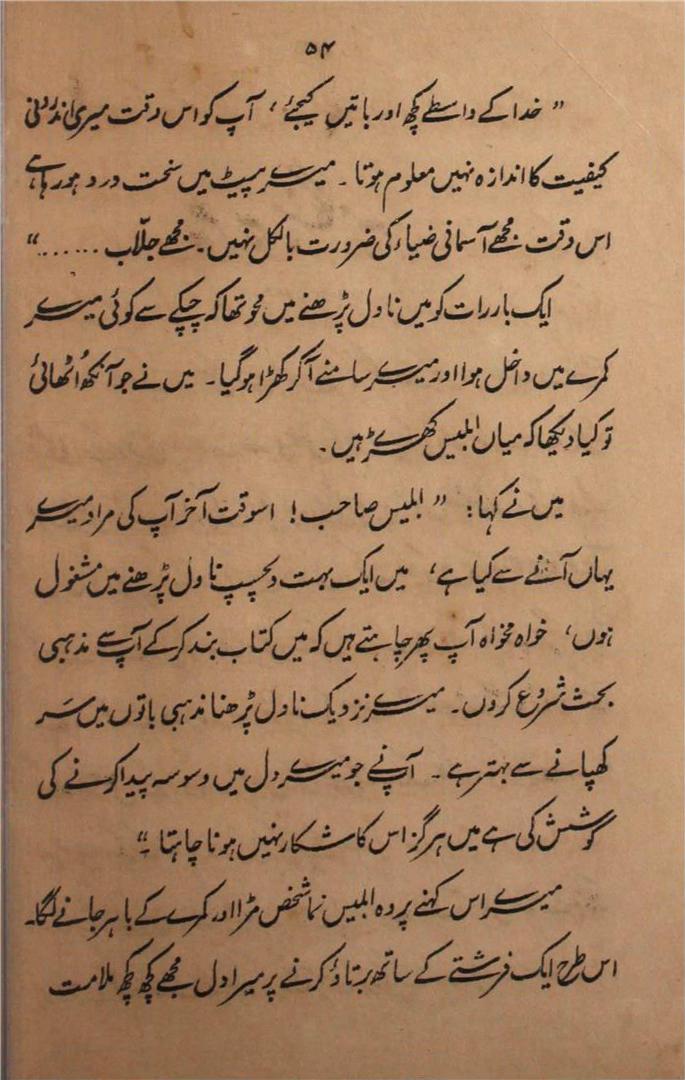 ۵۴
” خدا کے واسطے کچھ اور باتیں کیجئے ، آپ کو اس وقت میری اندرونی
کیفیت کا اندازہ نہیں معلوم ہوتا ۔ میرے پیٹ میں سخت درد ہو رہا ہے
اس وقت مجھے آسمانی ضیاء کی ضرورت بالکل نہیں ۔ مجھے جلّاب ......“
ایک بار رات کو میں ناول پڑھنے میں محو تھا کہ چپکے سے کوئی میرے
کمرے میں داخل ہوا اور میرے سامنے آکر کھڑا ہوگیا ۔ میں نے جو آنکھ اُٹھائی
تو کیا دیکھا کہ میاں ابلیس کھڑے ہیں ۔
میں نے کہا : ” ابلیس صاحب ! اسوقت آخر آپ کی مراد میرے
یہاں آنے سے کیا ہے ، میں ایک بہت دلچسپ ناول پڑھنے میں مشغول
ہوں ، خواہ مخواہ آپ پھر چاہتے ہیں کہ میں کتاب بند کر کے آپ سے مذہبی
بحث شروع کروں ۔ میرے نزدیک ناول پڑھنا مذہبی باتوں میں سَر
کھپانے سے بہتر ہے ۔ آپنے جو میرے دل میں وسوسہ پیدا کرنے کی
کوشش کی ہے میں ہرگز اس کا شکار نہیں ہونا چاہتا ۔“
میرے اس کہنے پر وہ ابلیس نما شخص مڑا اور کمرے کے باہر جانے لگا ۔
اس طرح ایک فرشتے کے ساتھ برتاؤ کرنے پر میرا دل مجھے کچھ کچھ ملامت